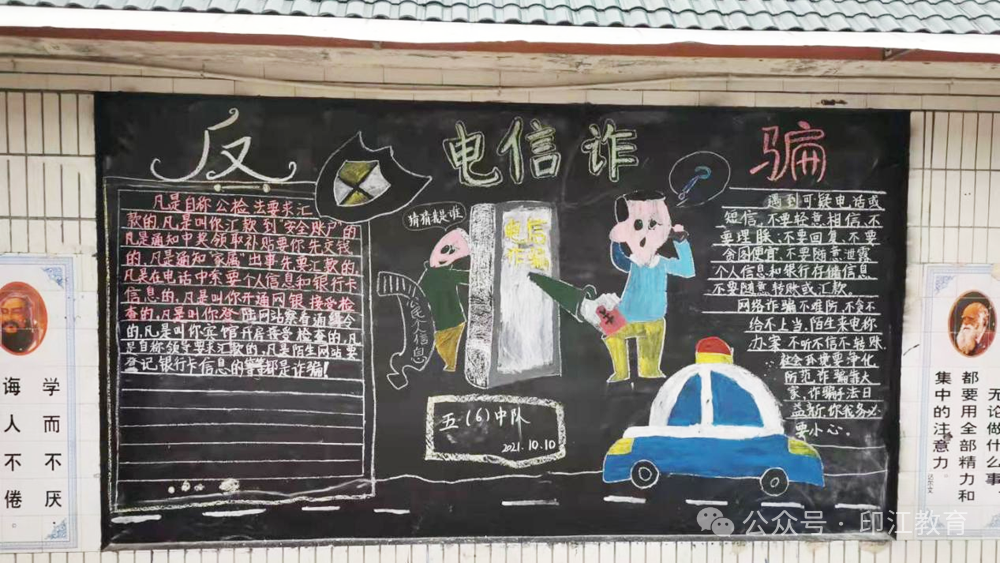 反 电信诈骗
凡是自称公检法要求汇
款的,凡是叫你汇款到"安全账户"的
凡是通知中奖领取补贴要你先交钱
的,凡是通知"家属"出事先要汇款的,
凡是在电话中索要个人信息和银行卡
信息的,凡是叫你开通网银接受检
查的,凡是叫你登陆网站查看通缉令
的,凡是叫你宾馆开房接受检查的,凡
是自称领导要求汇款的,凡是陌生网站要
登记银行卡信息的等等都是诈骗!
猜猜我是谁
电信
诈骗
个人信息
五(6)中队
2021.10.10
遇到可疑电话或
短信,不要轻意相信,不
要理睬,不要回复,不要
贪图便宜,不要随意泄露
个人信息和银行存储信息
不要随意转账或汇款。
网络诈骗不难防,不贪不
给不上当,陌生来电你
办案,不听不信不转账
社会环境要净化
防范诈骗靠大
家,诈骗手法日
益新,你我务必
要小心。
学而不厌
诲人不倦。
无论做什么事
都要用全部精力和
集中的注意力
公众号·印江教育